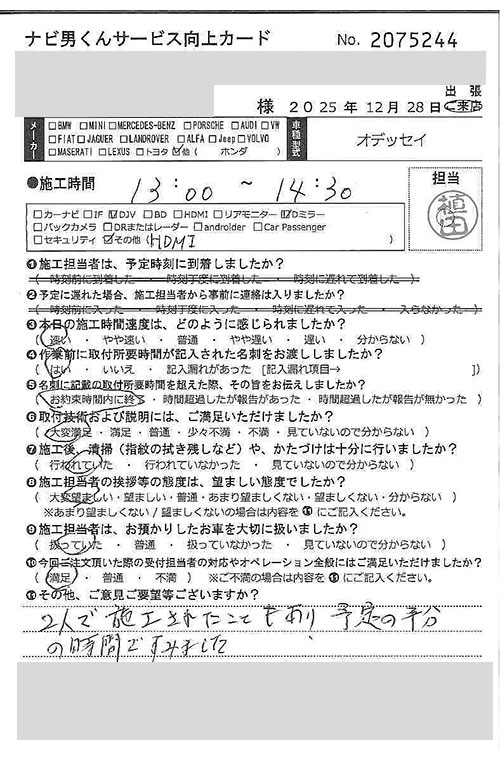 ナビ男くんサービス向上カード No. 2075244
出張
様 2025年12月28日 ご来店
メーカー □BMW □MINI □MERCEDES-BENZ □PORSCHE □AUDI □VW
□FIAT □JAGUER □LANDROVER □ALFA □Jeep □VOLVO
□MASERATI □LEXUS □トヨタ ☑他( ホンダ )
車種型式 オデッセイ
●施工時間 13:00 ~ 14:30
担当
植田
□カーナビ □IF ☑DJV □BD □HDMI □リアモニター ☑Dミラー
□バックカメラ □DRまたはレーダー □androider □Car Passenger
□セキュリティ ☑その他(HDMI )
❶施工担当者は、予定時刻に到着しましたか?
( 時刻前に到着した ・ 時刻丁度に到着した ・ 時刻に遅れて到着した )
❷予定に遅れた場合、施工担当者から事前に連絡は入りましたか?
( 時刻前に入った ・ 時刻丁度に入った ・ 時刻に遅れて入った ・ 入らなかった )
❸本日の施工時間速度は、どのように感じられましたか?
( 速い ・ やや速い ・ 普通 ・ やや遅い ・ 遅い ・ 分からない )
❹作業前に取付所要時間が記入された名刺をお渡ししましたか?
( はい ・ いいえ ・ 記入漏れがあった [記入漏れ項目→ ])
❺名刺に記載の取付所要時間を超えた際、その旨をお伝えしましたか?
(お約束時間内に終了・時間超過したが報告があった・時間超過したが報告が無かった)
❻取付技術および説明には、ご満足いただけましたか?
( 大変満足 ・ 満足 ・ 普通 ・ 少々不満 ・ 不満 ・ 見ていないので分からない )
❼施工後、清掃(指紋の拭き残しなど)や、かたづけは十分に行いましたか?
( 行われていた ・ 行われていなかった ・ 見ていないので分からない )
❽施工担当者の挨拶等の態度は、望ましい態度でしたか?
( 大変望ましい・望ましい・普通・あまり望ましくない・望ましくない・分からない )
※あまり望ましくない / 望ましくないの場合は内容を⓫にご記入ください。
❾施工担当者は、お預かりしたお車を大切に扱いましたか?
( 扱っていた ・ 普通 ・ 扱っていなかった ・ 見ていないので分からない )
❿今回ご注文頂いた際の受付担当者の対応やオペレーション全般にはご満足いただけましたか?
( 満足 ・ 普通 ・ 不満 ) ※ご不満の場合は内容を⓫にご記入ください。
⓫その他、ご意見ご要望等ございますか?
2人で施工されたこともあり、予定の半分
の時間ですみました